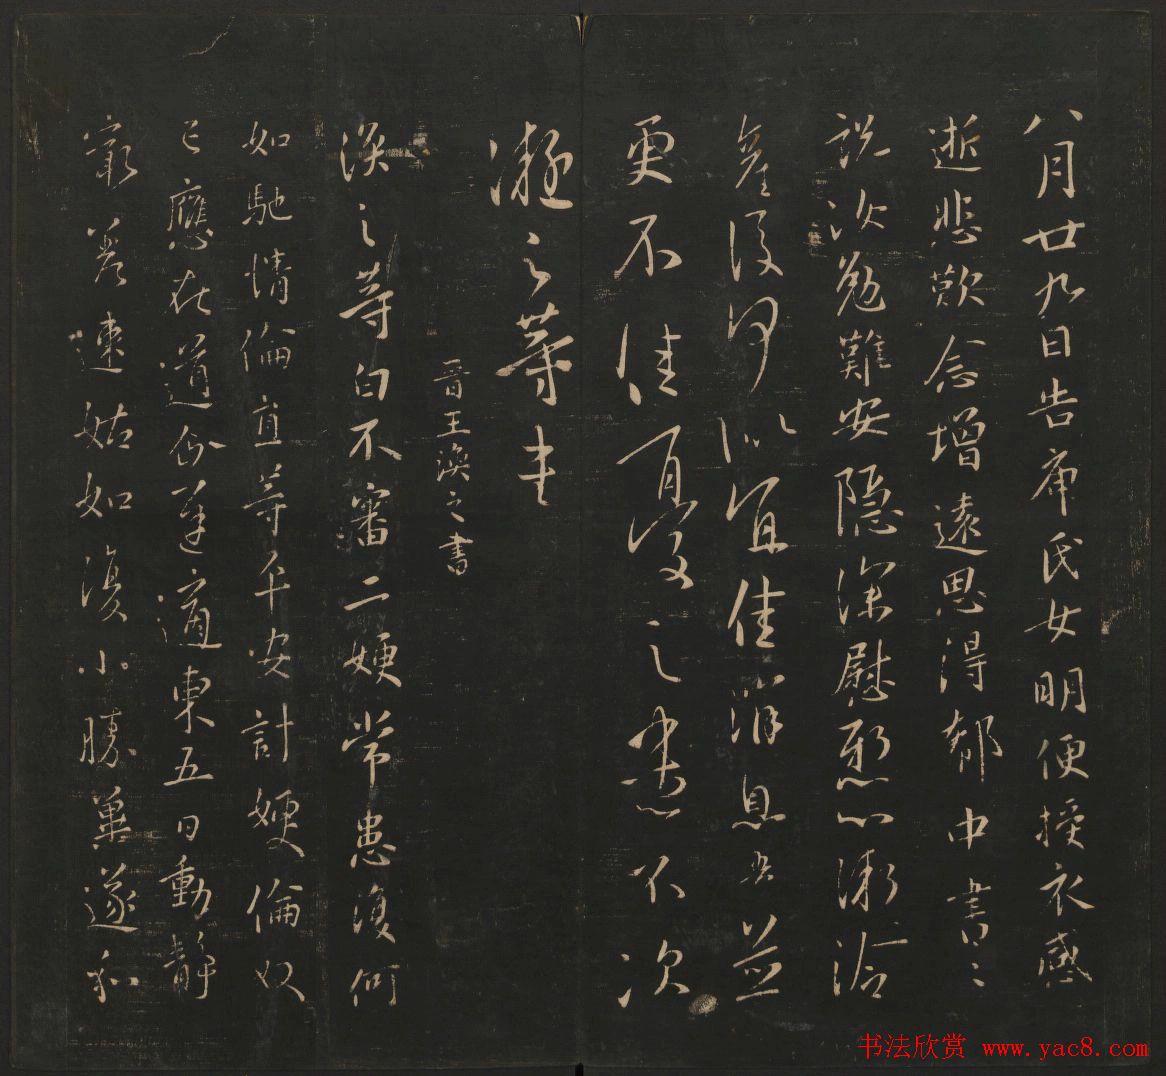 八月廿九日告庾氏女明便授衣感
逝悲歎念增遠思得郗中書書
說汝勉難安隱深慰懸心漸冷
產後何似宜佳消息吾並
更不佳憂之 不次
凝之等書
晉王渙之書
渙之等白不審二嫂常患復何
如馳情倫直等平安計嫂倫奴
已應在道企遲適東五日動靜
差速姑如復小勝冀遂和
书法欣赏 www.yac8.com